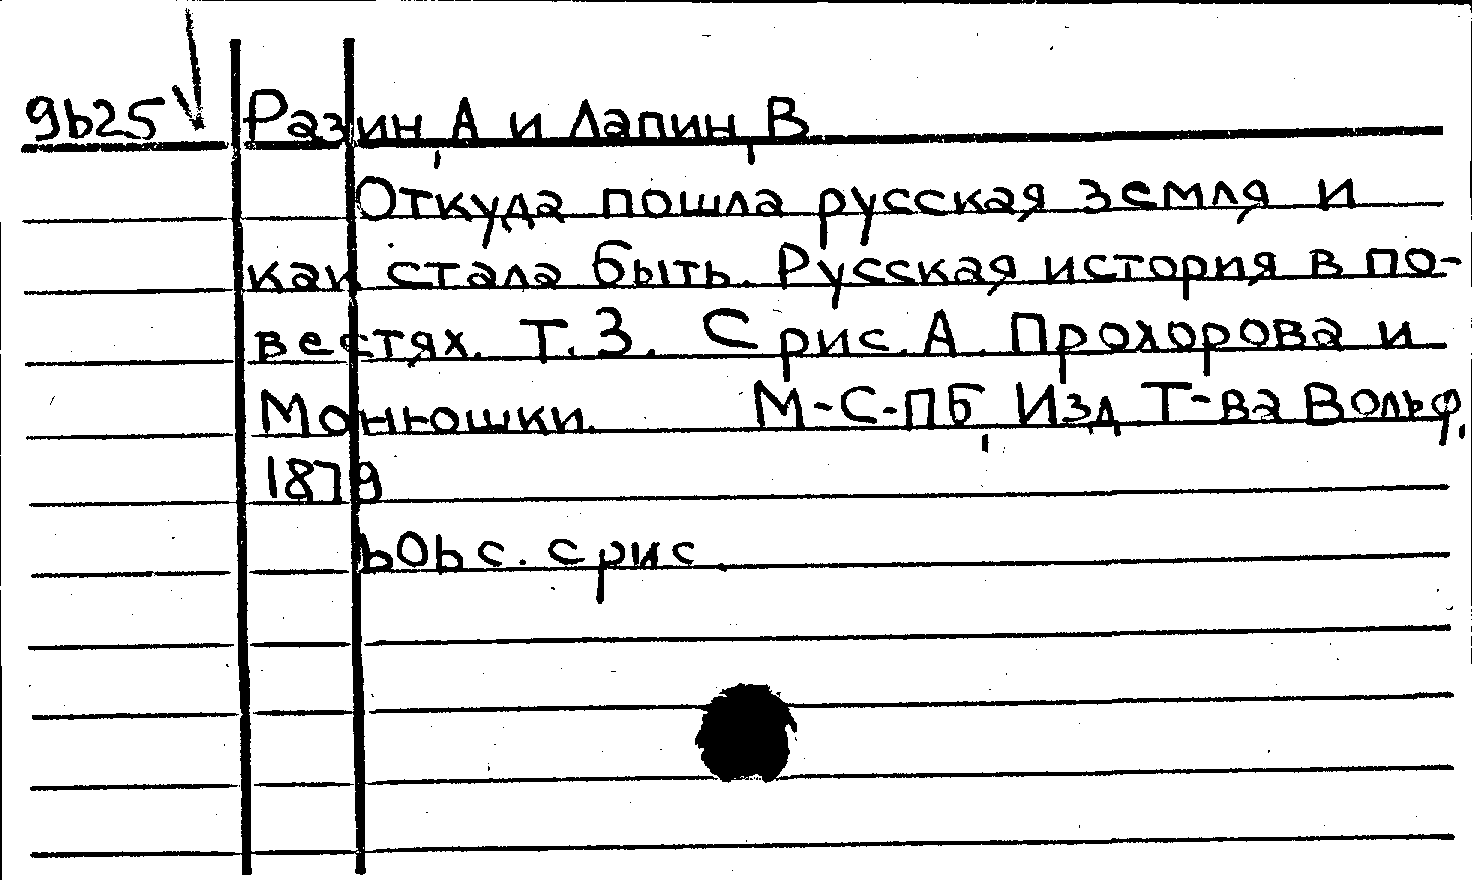 9625 Разин, А и Лапин, В
Откуда пошла русская земля и
как стала быть. Русская история в по-
вестях. Т. 3. С рис. А. Прохорова и
Монюшки. М-С-ПБ, Изд. Т-ва Вольф,
1879
606 с. с рис.